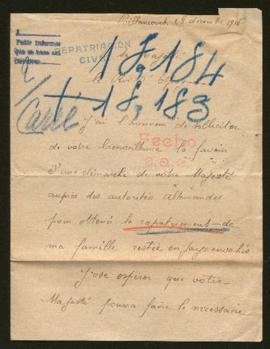 REPATRIACION
CIVIL
18,184
+ 18,183
Carte
J'ai l'honneur de solliciter
de votre bienveillance la faveur
d'une démarche de votre Majesté
auprès des autorités Allemandes
pour obtenir le rapatriement de
ma famille, restée en pays envahis
J'ose espérer que votre
Majesté pourra faire le nécessaire